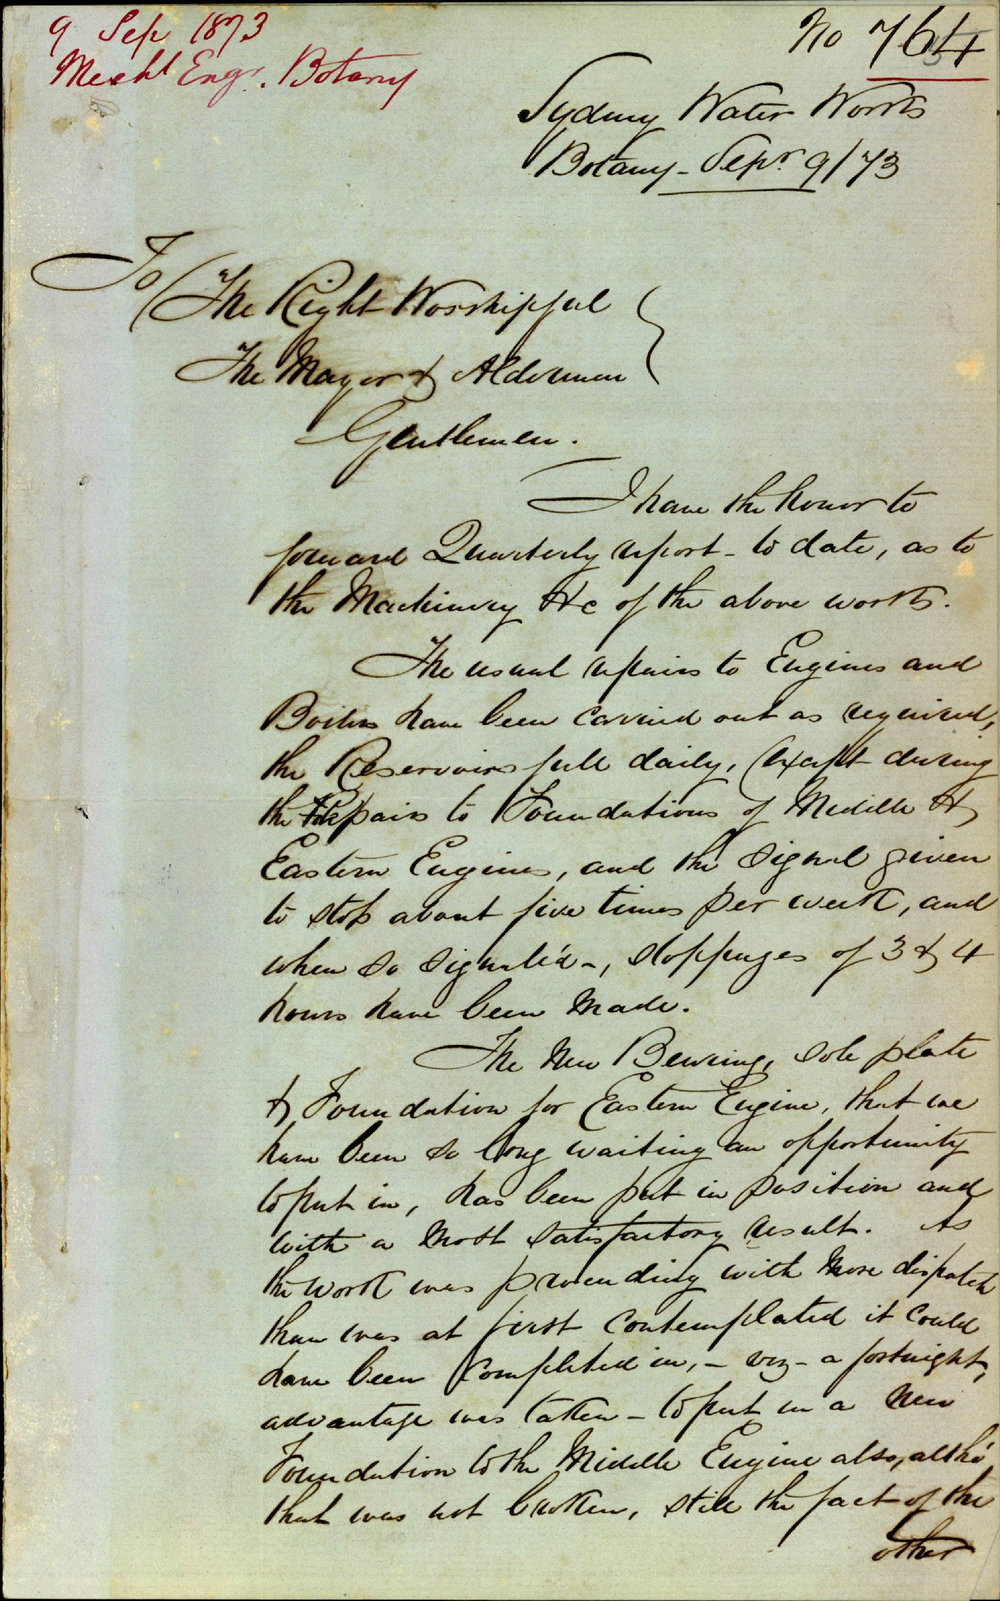 9 Sep 1873
Mechl Engr. Botany
No 764
Sydney Water Works
Botany - Sepr. 9/73
To
The Right Worshipful
The Mayor & Aldermen
Gentlemen.
I have the honor to
forward Quarterly report - to date, as to
the Machinery &c of the above works.
The usual repairs to Engines and
Boilers have been carried out as required,
the Reservoirs full daily, except during
the Repairs to Foundations of Middle &
Eastern Engines, and the signal given
to stop about five times per week, and
when so signaled -, stoppages of 3 & 4
hours have been made.
The New Bearing, sole plate
& Foundation for Eastern Engine, that we
have been so long waiting an opportunity
to put in, has been put in position and
with a most satisfactory result. As
the work was proceeding with more dispatch
than was at first contemplated it could
have been completed in, - viz - a fortnight,
advantage was taken - to put in a new
Foundation to the Middle Engine also, altho'
that was not broken, still the fact of the
other